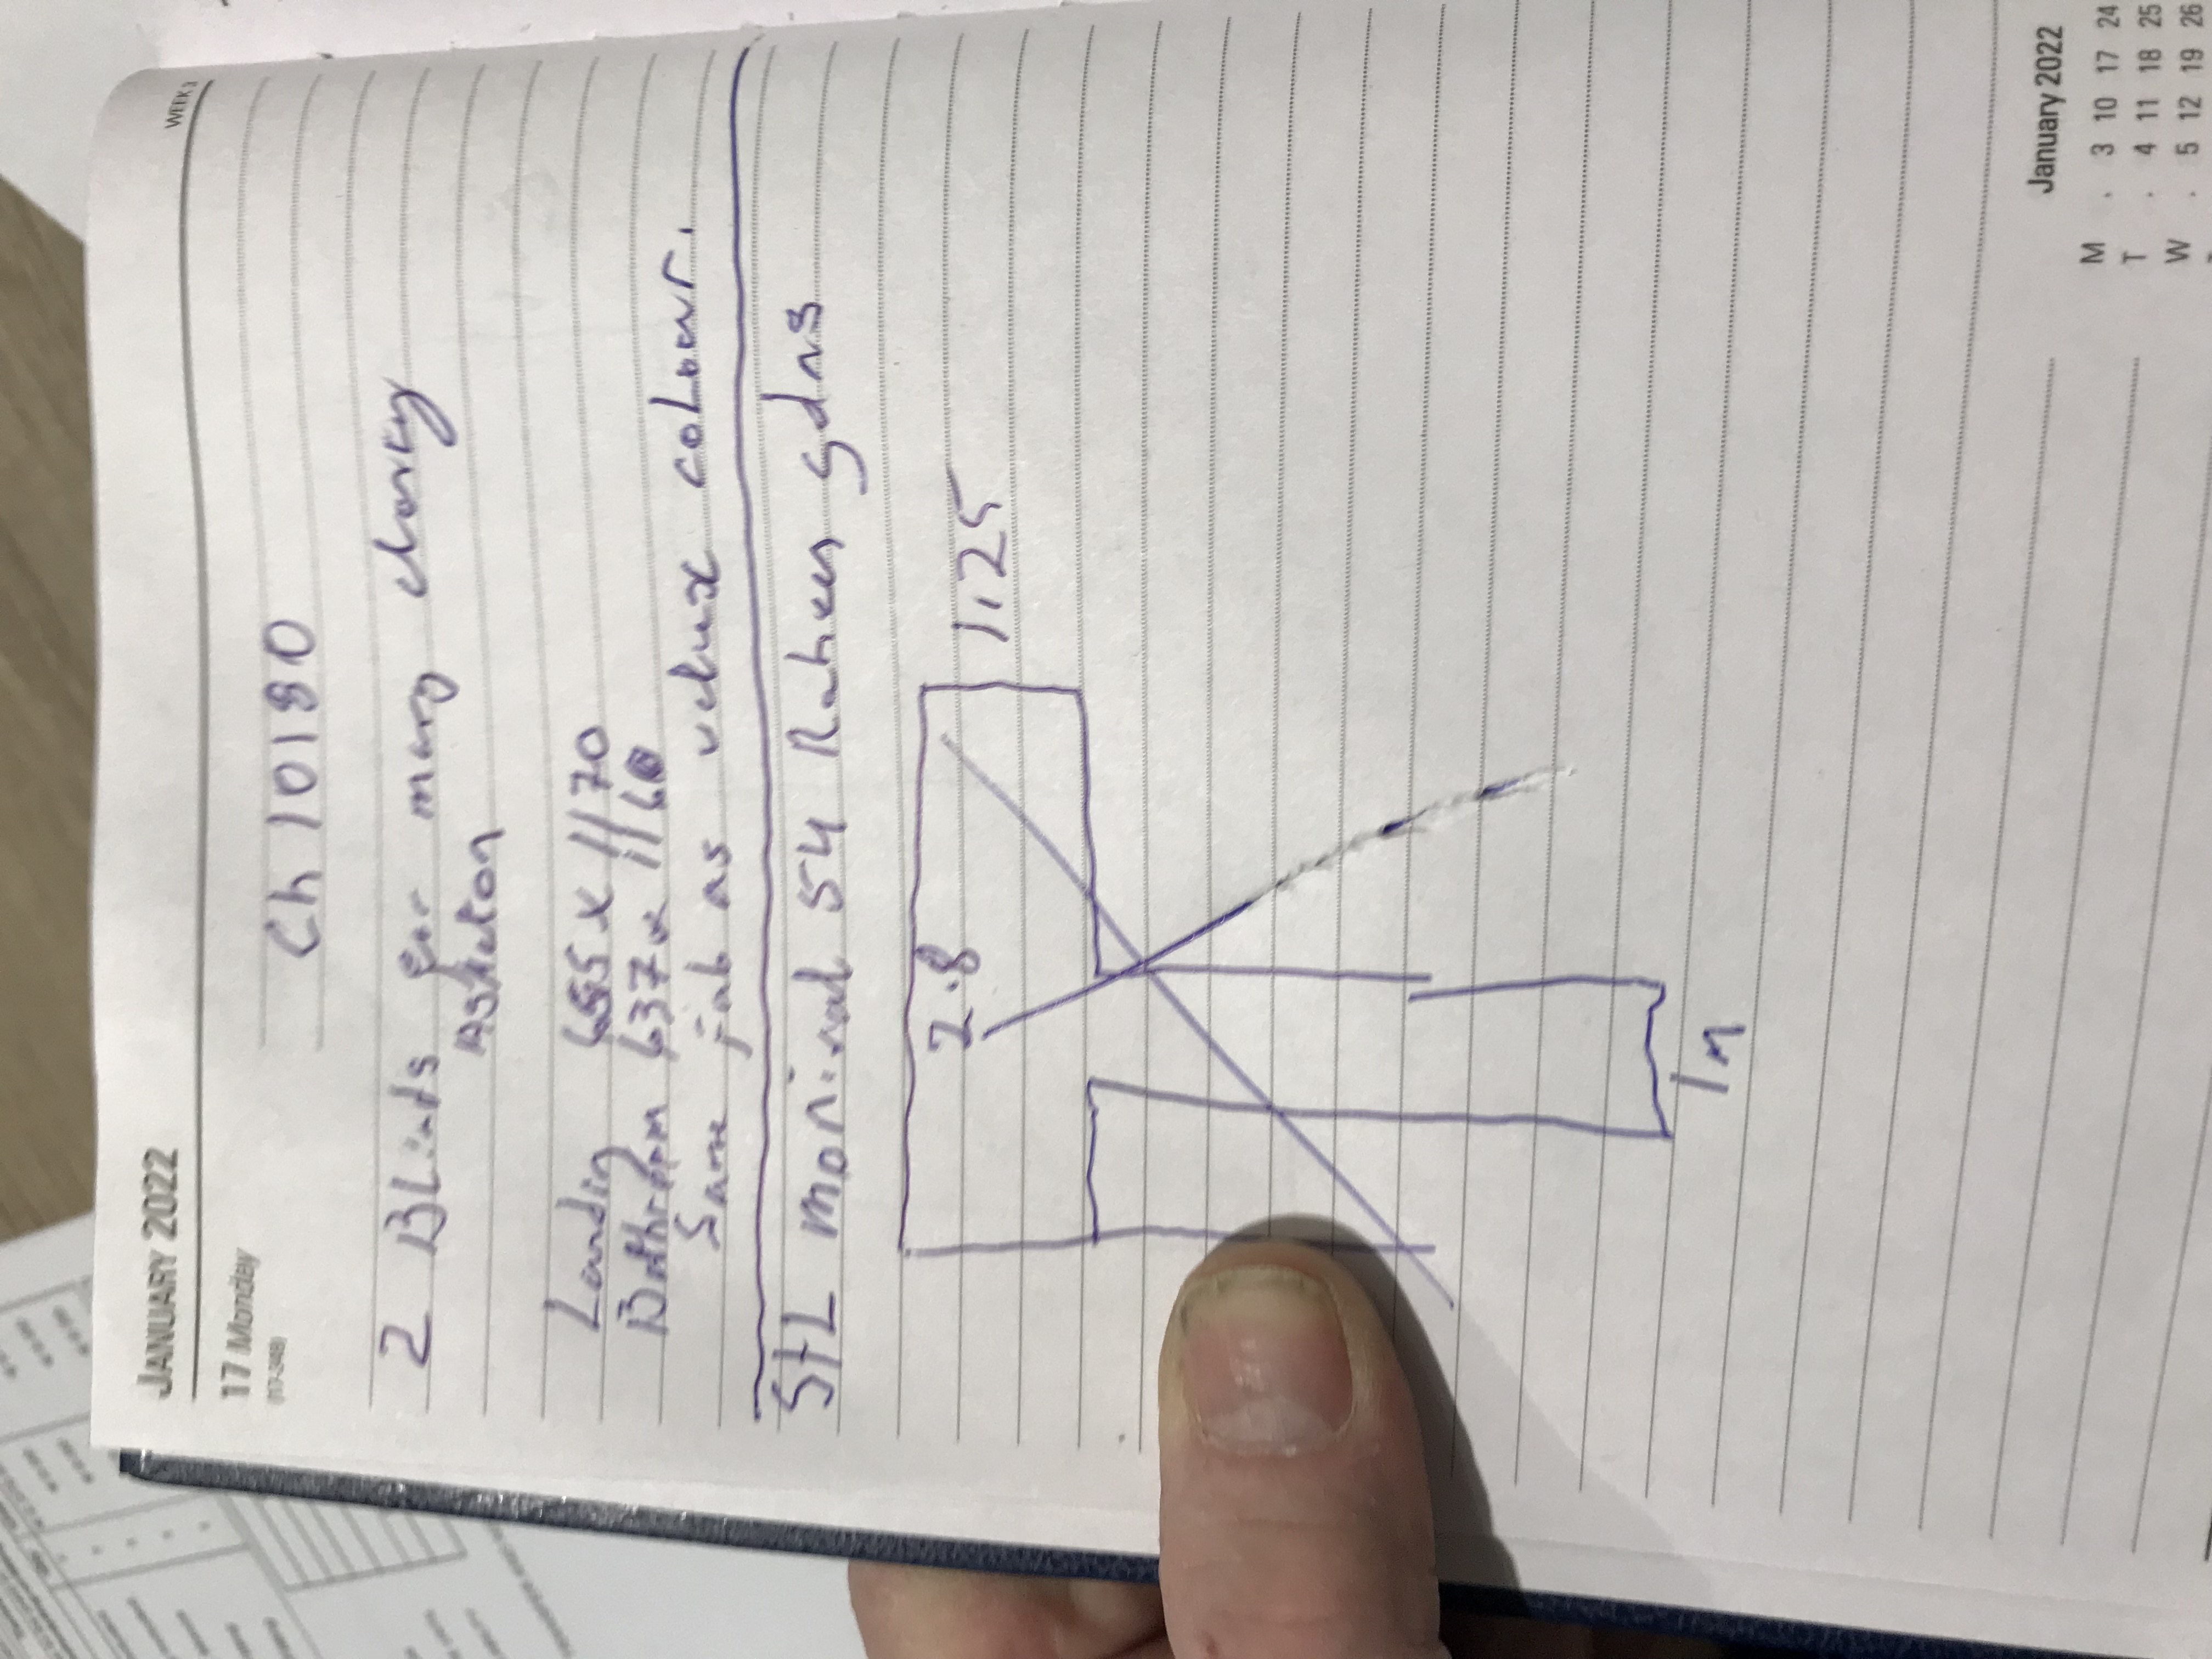 JANUARY 2022
WEEK 3
17 Monday
(17-348)
Ch 10180
2 BLinds for mary charky
Landin 655 x 1170
Bathroom 637 x 1160
Same job as velux colour.
StL 54 gdns
2.8
1.25
1m
January 2022
M . 3 10 17 24
T . 4 11 18 25
W . 5 12 19 26